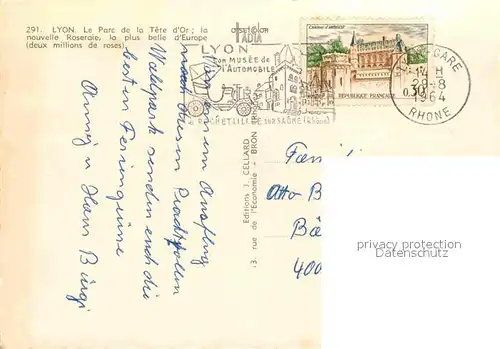 291. LYON. Le Parc de la Tête d'Or; la
nouvelle Roseraie, la plus belle d'Europe
(deux millions de roses)
LYON
son MUSÉE de
l'AUTOMOBILE
ROCHETAILLÉE sur SAÔNE (Rhône)
CHATEAU D'AMBOISE
0,30
REPUBLIQUE FRANÇAISE
GARE
14 H
29-8
1964
RHONE
Editions J. CELLARD
3, rue de l'Economie - BRON
Von einem Ausflug
nach diesem
Waldpark senden euch die
besten Feriengrüsse
Anny u Hans Bürgi
Familie
Otto B
400
privacy protection
Datenschutz